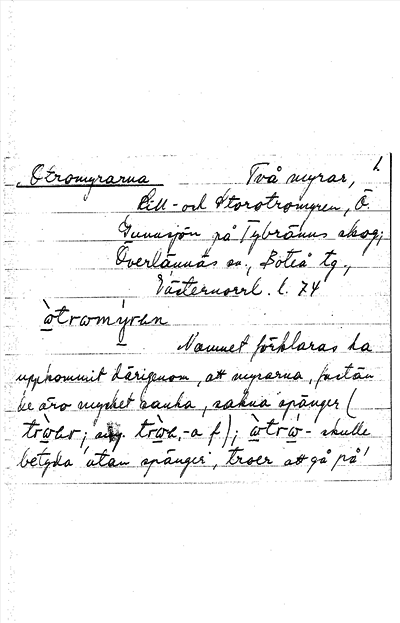 Otromyrarna Två myrar, 1.
Lill- och Storotromyren, Ö.
Gunnsjön på Tybränns skog;
Överlännäs sn., Boteå tg.,
Västernorrl. l. 74
òtrωmýrεn
Namnet förklaras ha
uppkommit därigenom, att myrarna, fastän
de äro mycket sanka, sakna spänger (
; -a f); - skulle
betyda 'utan spänger', troer att gå på'